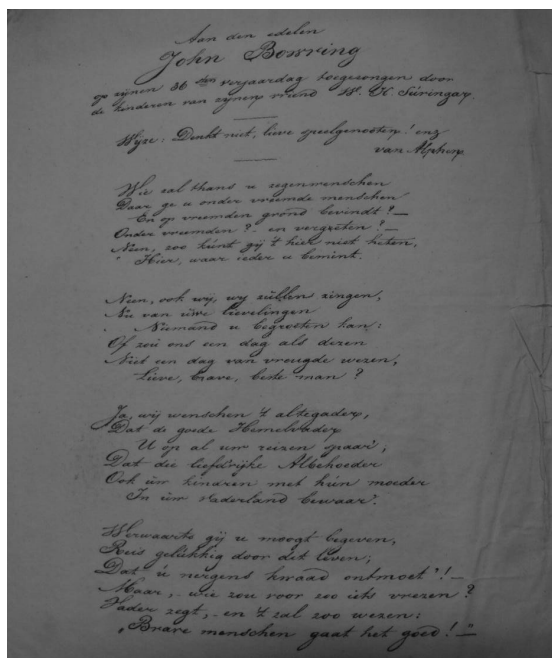 Aan den edelen
John Bowring
op zijnen 36sten verjaardag toegezongen door
de kinderen van zijnen vriend W. H. Suringar
Wijze: Denkt niet, lieve speelgenooten! enz
van Alphen
Wie zal thans u zegenwenschen
Daar ge u onder vreemde menschen
En op vreemden grond bevindt? —
Onder vreemden? - en vergeten? —
Neen, zoo kunt gij 't hier niet heten,
Hier, waar ieder u bemint.
Neen, ook wij, wij zullen zingen,
Nu van uwe lievelingen
Niemand u begroeten kan:
Of zou ons een dag als dezen
Niet een dag van vreugde wezen,
Lieve, brave, beste man?
Ja, wij wenschen 't altegader,
Dat de goede Hemelvader
U op al uw reizen spaar',
Dat die liefdrijke Albehoeder
Ook uw kindren met hun moeder
In uw vaderland bewaar'.
Werwaarts gij u moogt begeven,
Reis gelukkig door dit leven;
Dat u nergens kwaad ontmoet'! —
Maar, - wie zou voor zoo iets vrezen?
Vader zegt, - en 't zal zoo wezen:
„Brave menschen gaat het goed! —"